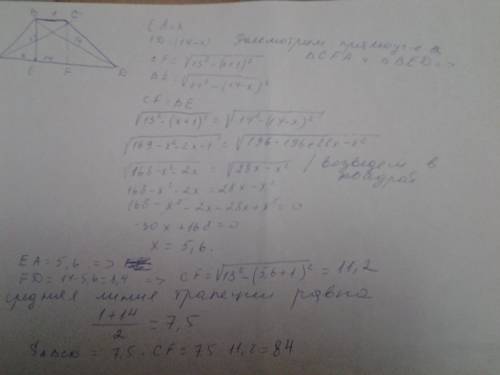 B 1 C
13 14
x 14
E F D
EA=x
FD=(14-x) Рассмотрим прямоуг-е ∆
∆CFA и ∆BED =>
CF=√13²-(x+1)²
BE=√14²-(14-x)²
CF=BE
√13²-(x+1)²=√14²-(14-x)²
√169-x²-2x-1=√196-196+28x-x²
√168-x²-2x=√28x-x² / возведем в квадрат
168-x²-2x=28x-x²
168-x²-2x-28x+x²=0
-30x+168=0
x=5,6.
EA=5,6 =>
FD=14-5,6=8,4 => CF=√13²-(5,6+1)²=11,2
средняя линия трапеции равна
1+14
2 =7,5
SABCD = 7,5 · CF=7,5 · 11,2=84